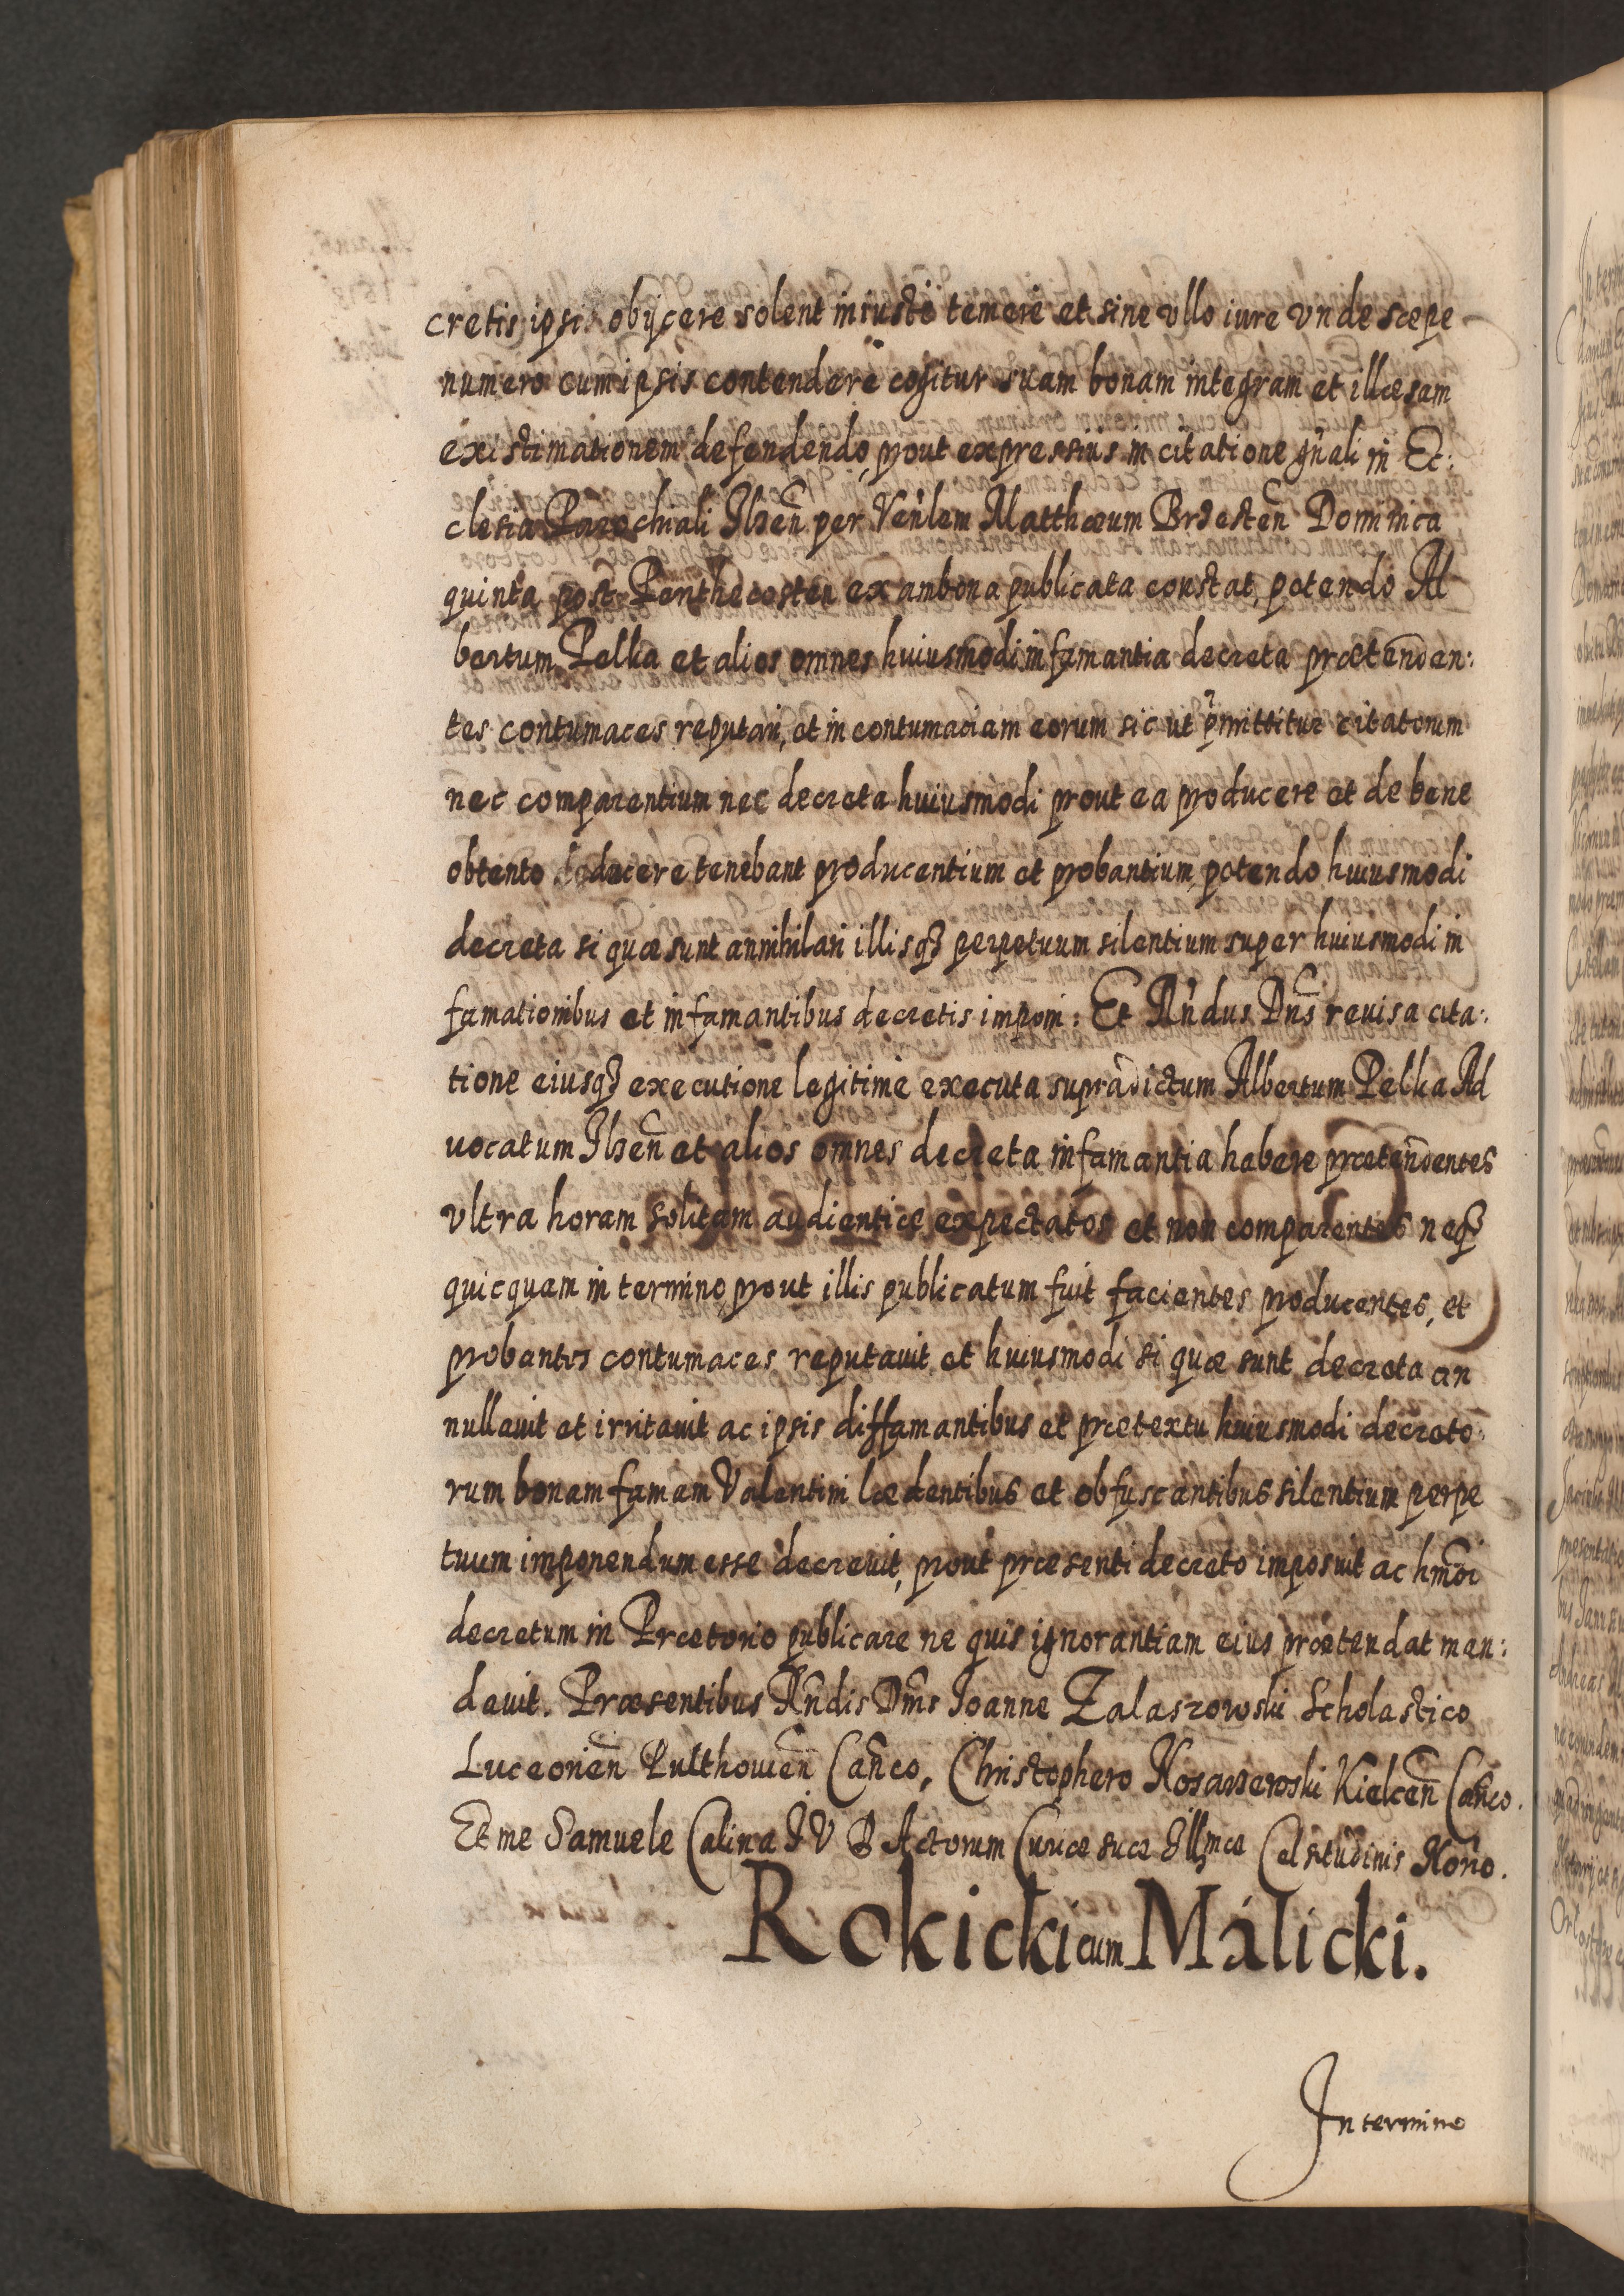 cretis ipsis obijcere solent iniustè temerè et sine vllo iure vnde sæpe
numero cum ipsis contendere cogitur suam bonam integram et illæsam
existimationem defendendo, prout expressius in citatione gñali in Ec:
clesia Parochiali Ilzeñ per Veñlem Matthæum Brzesteñ Dominica
quinta post Penthecosten ex ambona publicata constat, petendo Al
bertum Pelka et alios omnes huiusmodi infamantia decreta prætenden:
tes contumaces reputari, et in contumaciam eorum sic ut p̃mittitur citatorum
nec comparentium nec decreta huiusmodi prout ea producere et de bene
obtento docere tenebant producentium et probantium, petendo huiusmodi
decreta si quæ sunt annihilari illisq3 perpetuum silentium super huiusmodi in
famationibus et infamantibus decretis imponi: Et Rñdus Dñs reuisa cita:
tione eiusq3 executione legitime executa supradictum Albertum Pelka Ad
uocatum Ilzeñ et alios omnes decreta infamantia habere prætendentes
vltra horam solitam audientiæ expectatos et non comparentes neq3
quicquam in termino, prout illis publicatum fuit facientes producentes, et
probantes contumaces reputauit et huiusmodi si quæ sunt decreta an
nullauit et irritauit ac ipsis diffamantibus et prætextu huiusmodi decreto:
rum bonam famam Valentini lædentibus et obfuscantibus silentium perpe
tuum imponendum esse decreuit, prout præsenti decreto imposuit ac hmõi
decretum in Prætorio publicare ne quis ignorantiam eius prætendat man:
dauit. Præsentibus Rñdis Dñis Ioanne Zalaszowski Scholastico
Luceorieñ Pulthouieñ Cañco, Christophero Kosarzewski Kielceñ Cañco.
Et me Samuele Calina I V D Actorum Curiæ suæ Illmæ Celsitudinis Noño.
Rokicki cum Málicki.
In termino